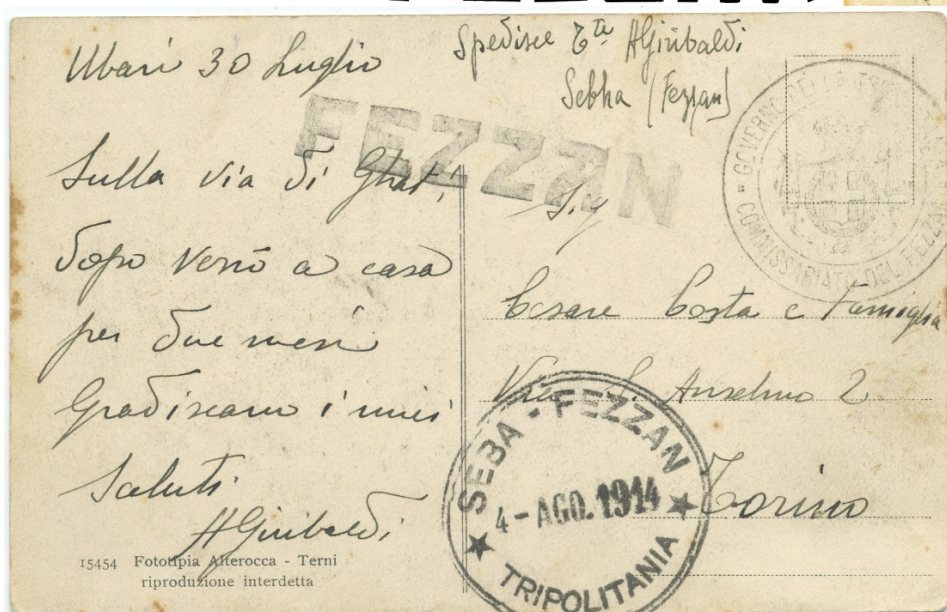 Ubari 30 Luglio
Sulla via di Ghat,
dopo verrò a casa
per due mesi
Gradiscano i miei
Saluti
AGiribaldi
15454 Fototipia Alterocca - Terni
riproduzione interdetta
Spedisce Tte AGiribaldi
Sebha (Fezzan)
FEZZAN
GOVERNO DELLA
COMMISSARIATO DEL FEZZAN
Cesare Costa e Famiglia
Via S. Anselmo 2
Torino
SEBA - FEZZAN
4 - AGO. 1914
TRIPOLITANIA